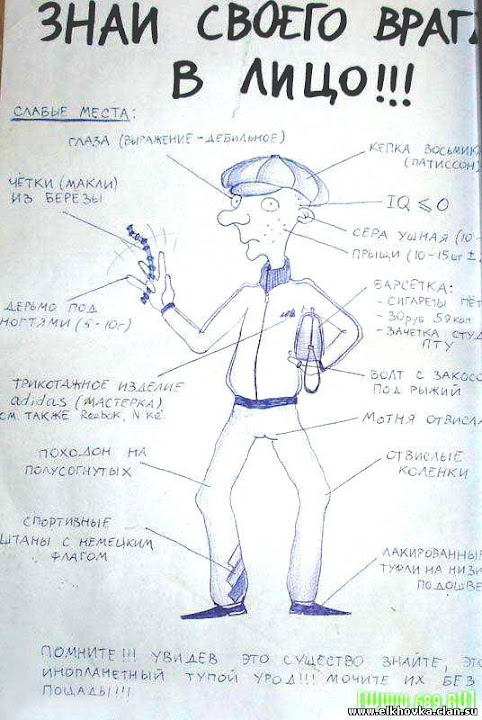 ЗНАЙ СВОЕГО ВРАГА
В ЛИЦО!!!
СЛАБЫЕ МЕСТА:
ГЛАЗА (ВЫРАЖЕНИЕ - ДЕБИЛЬНОЕ)
КЕПКА ВОСЬМИК
(ПАТИССОН)
ЧЁТКИ (МАКЛИ)
ИЗ БЕРЁЗЫ
IQ ⩽ 0
СЕРА УШНАЯ (10-
ПРЫЩИ (10-15шт ±
БАРСЕТКА:
- СИГАРЕТЫ ПЁТ
- 30 руб 59 коп
- ЗАЧЕТКА СТУД
ПТУ
ДЕРЬМО ПОД
НОГТЯМИ (5-10г)
БОЛТ С ЗАКОСО
ПОД РЫЖИЙ
ТРИКОТАЖНОЕ ИЗДЕЛИЕ
adidas (МАСТЕРКА)
СМ. ТАКЖЕ Reebok, Nike
МОТНЯ ОТВИСЛА
ПОХОДОН НА
ПОЛУСОГНУТЫХ
ОТВИСЛЫЕ
КОЛЕНКИ
СПОРТИВНЫЕ
ШТАНЫ С НЕМЕЦКИМ
ФЛАГОМ
ЛАКИРОВАННЫЕ
ТУФЛИ НА НИЗК
ПОДОШВЕ
ПОМНИТЕ!!! УВИДЕВ ЭТО СУЩЕСТВО ЗНАЙТЕ, ЭТО
ИНОПЛАНЕТНЫЙ ТУПОЙ УРОД!!! МОЧИТЕ ИХ БЕЗ
ПОЩАДЫ!!!
www.elkhovka.clan.su